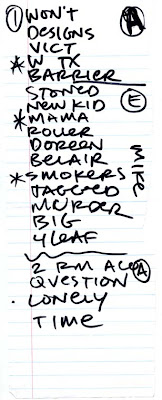 ① WON'T Ⓐ
DESIGNS
VICT
* W TX
BARRIER
STONED Ⓔ
NEW KID
* MAMA
ROLLER
DOREEN
BELAIR MIKE
* SMOKERS
JAGGED
MURDER
BIG
4 LEAF
2 RM ACO Ⓐ
QUESTION
LONELY
TIME